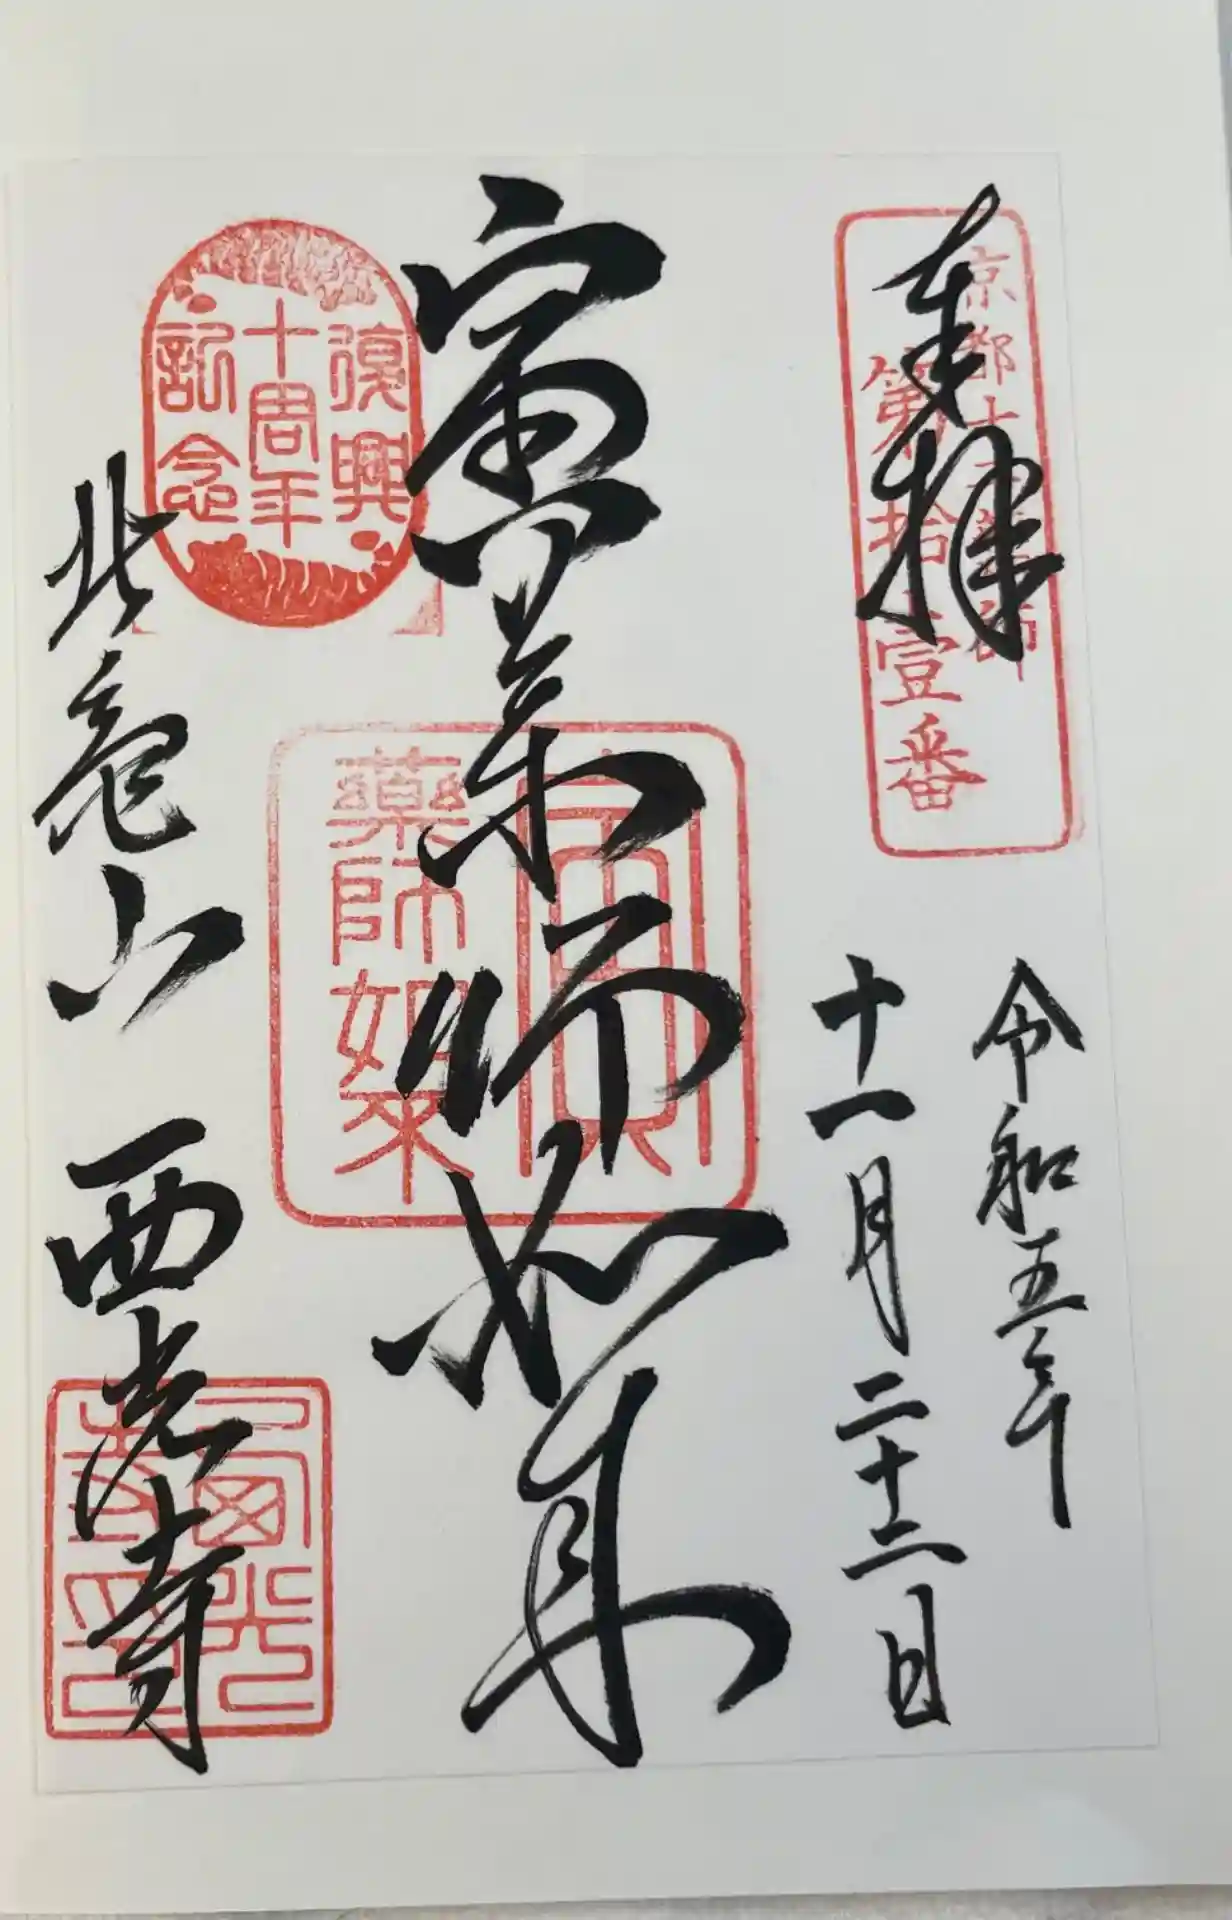 奉拝
京都十二薬師
第拾壹番
令和五年
十一月二十二日
寅薬師如来
寅
藥師如来
復興
十周年
記念
北亀山 西光寺
西光
寺印